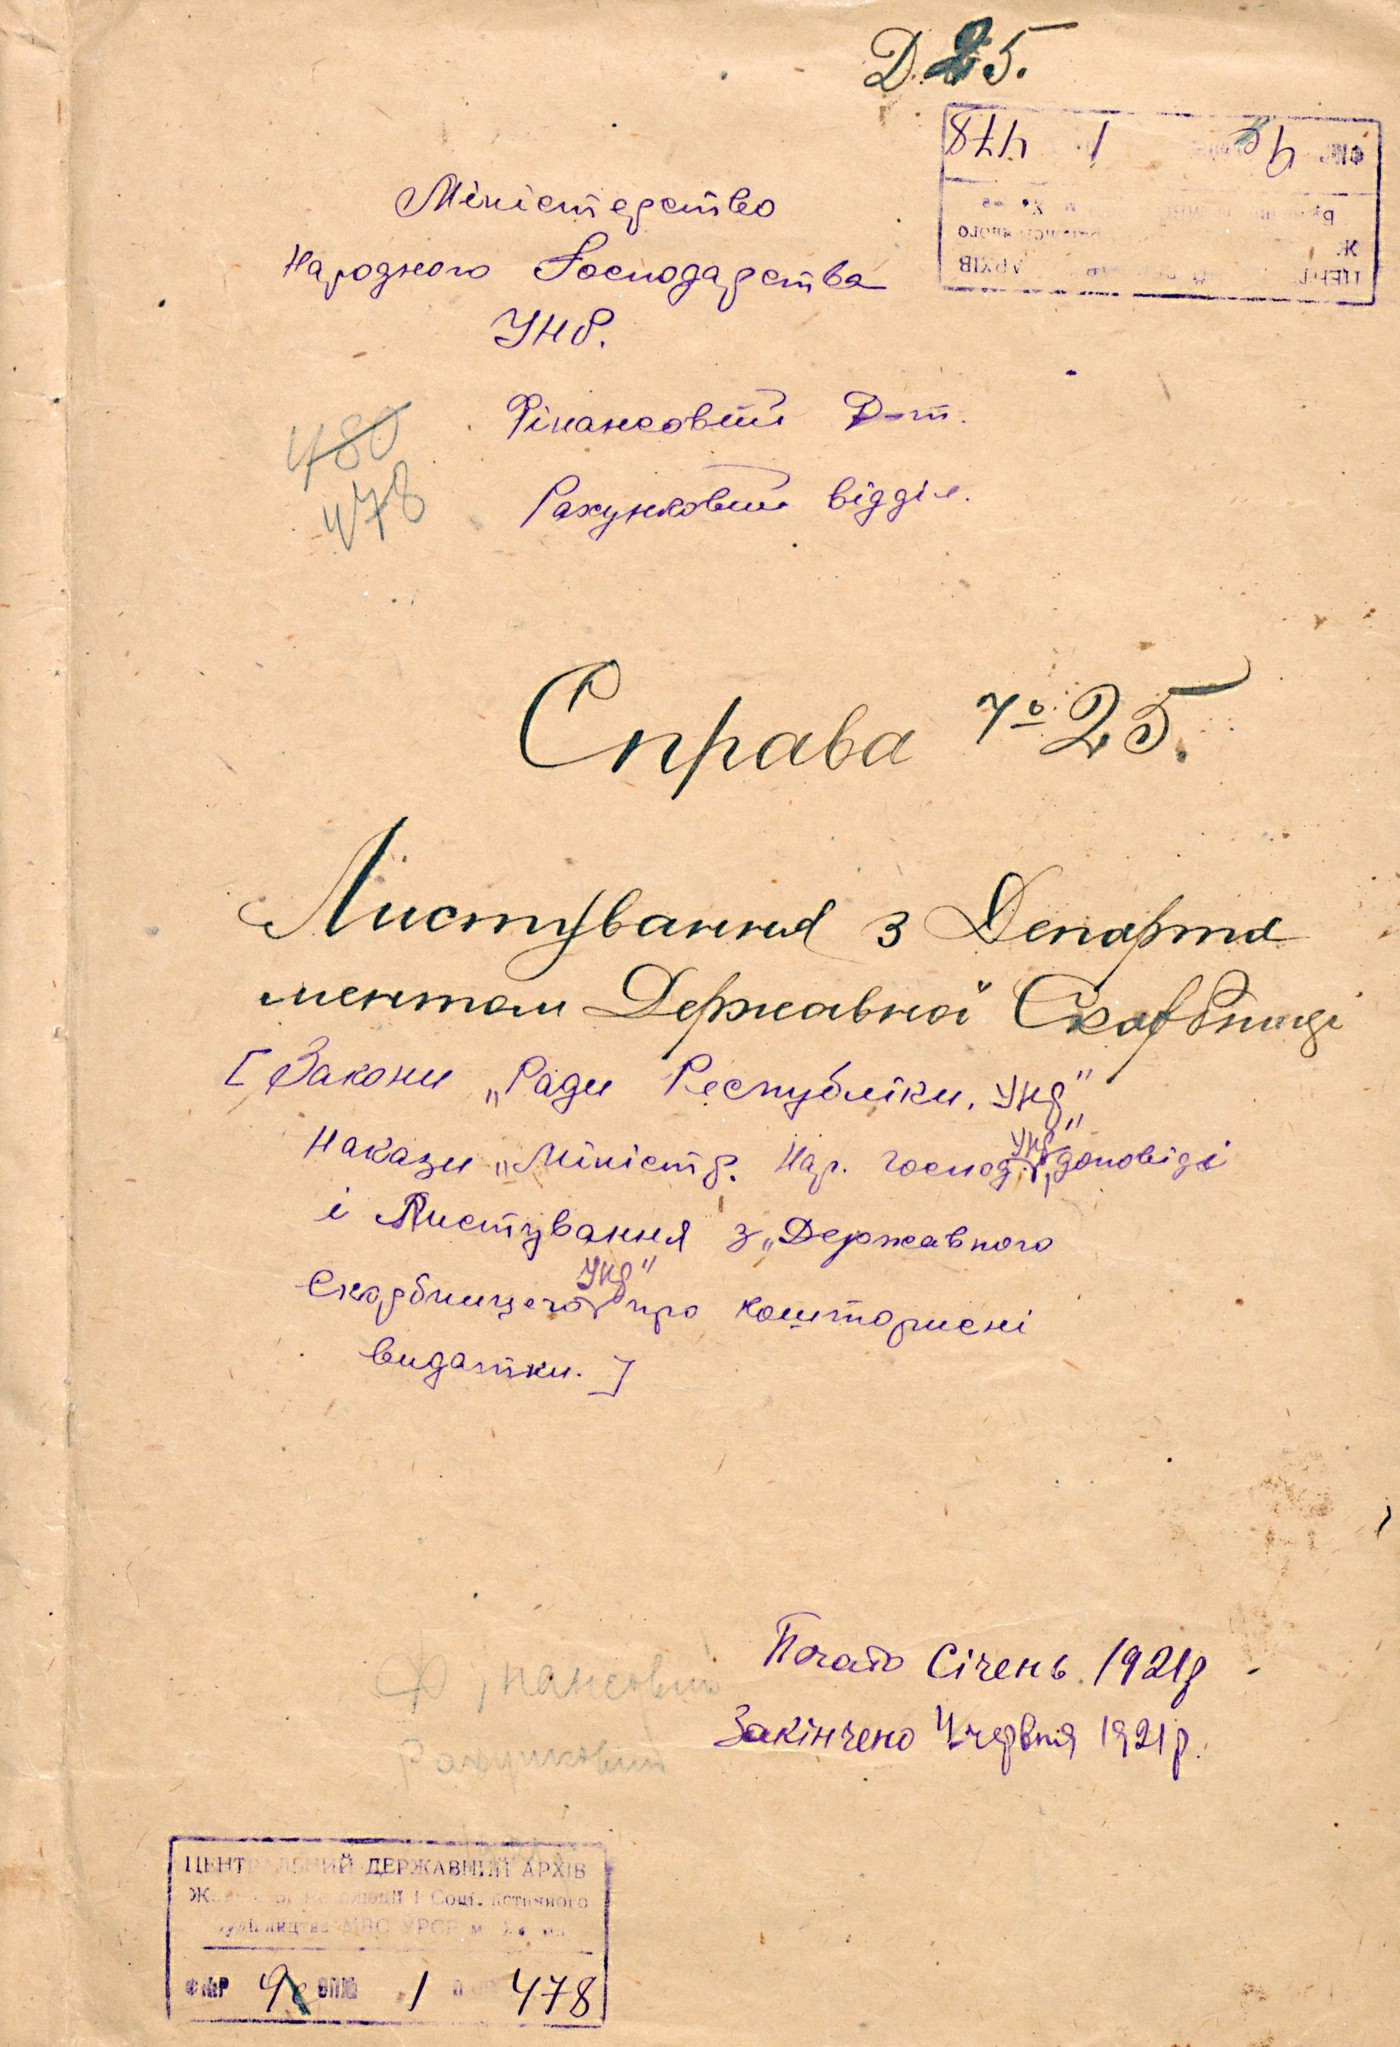 Д. 25.
Міністерство
Народного Господарства
УНР.
Фінансовий Д-т.
480
478
Рахунковий відділ.
Справа № 25.
Листування з Департа
ментом Державної Скарбниці
[Закони „Ради Республіки УНР"
Накази „Міністр. Нар. Господ. УНР", доповіді
і Листування з „Державного
Скарбницею УНР" про кошторисні
видатки.]
Почато Січень 1921р
Фінансовий
Закінчено 4 червня 1921р.
Рахунковий
ЦЕНТРАЛЬНИЙ ДЕРЖАВНИЙ АРХІВ
Жовтневої Революції і Соціалістичного
будівництва МВС УРСР м. Харків
1 478